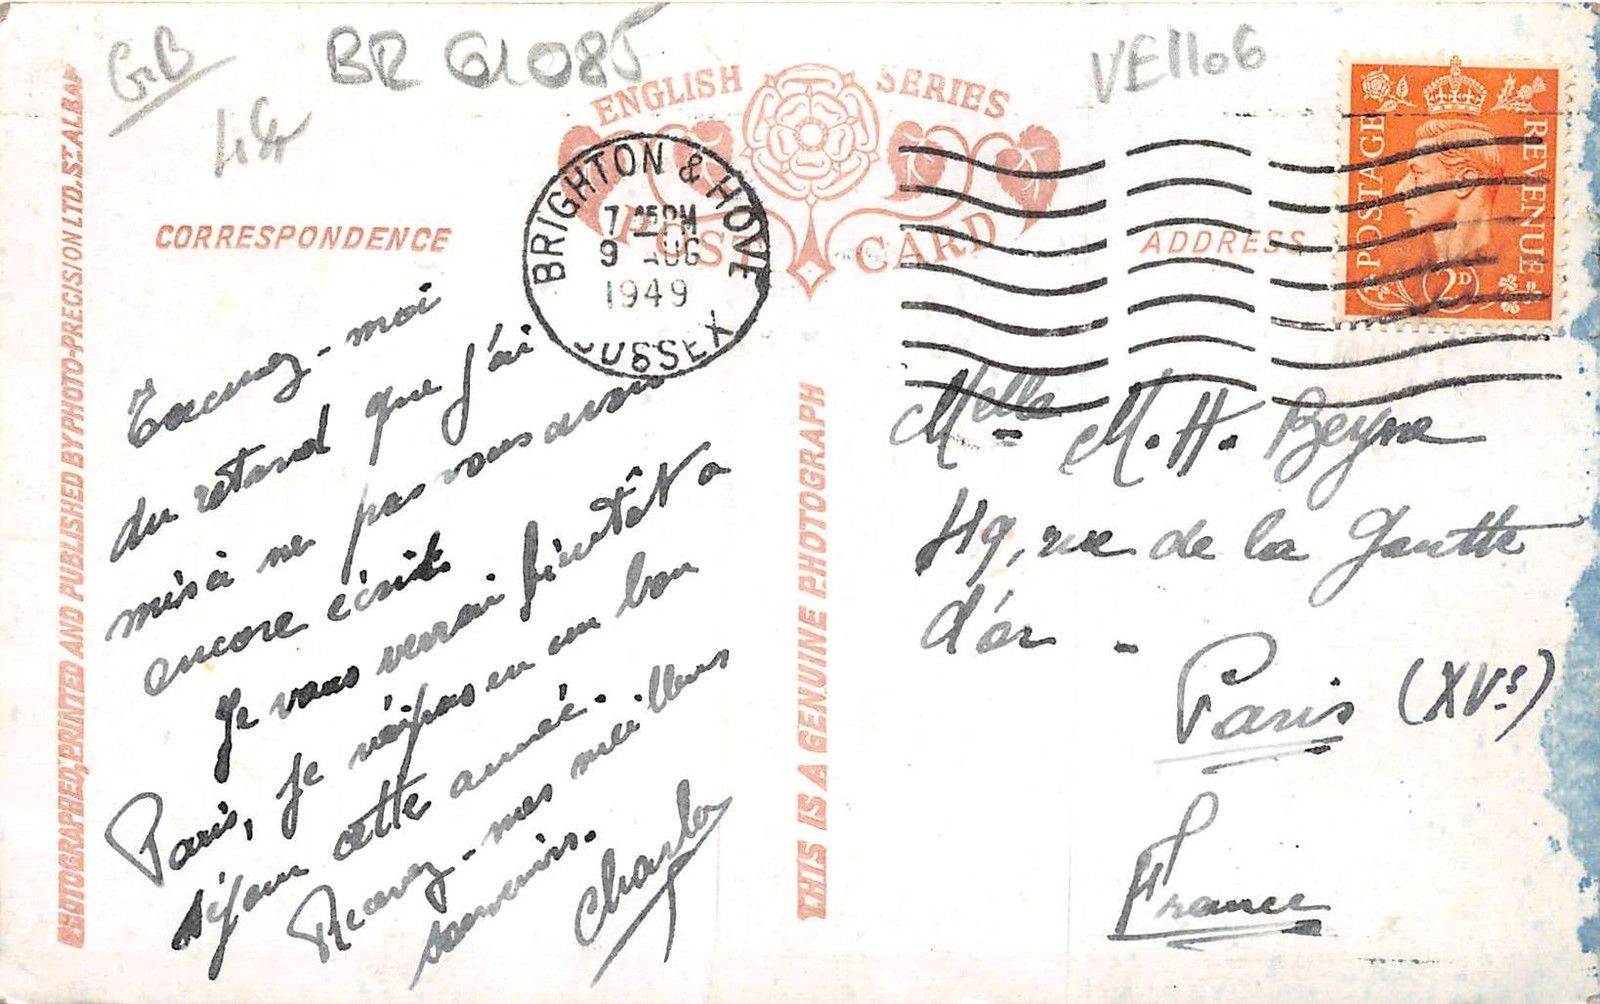 GB
4 Gr
BR 61085
VE1106
ENGLISH SERIES
POST CARD
CORRESPONDENCE
ADDRESS
BRIGHTON & HOVE
7 15PM
9 AUG
1949
SUSSEX
POSTAGE REVENUE
2D
PHOTOGRAPHED, PRINTED AND PUBLISHED BY PHOTO-PRECISION LTD. ST. ALBANS
THIS IS A GENUINE PHOTOGRAPH
Excusez-moi
du retard que j'ai
mis à ne pas vous avoir
encore écrit.
Je vous verrai bientôt à
Paris, je n'ai pas eu un bon
séjour cette année.
Recevez-mes meilleurs
souvenirs.
Charlo
Melle M.H. Beyne
49, rue de la Goutte
d'or -
Paris (XVs)
France